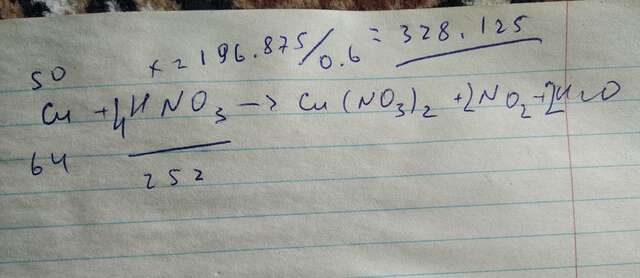 50 x = 196.875/0.6 = 328.125
Cu + 4HNO3 -> Cu(NO3)2 + 2NO2 + 2H2O
64 252